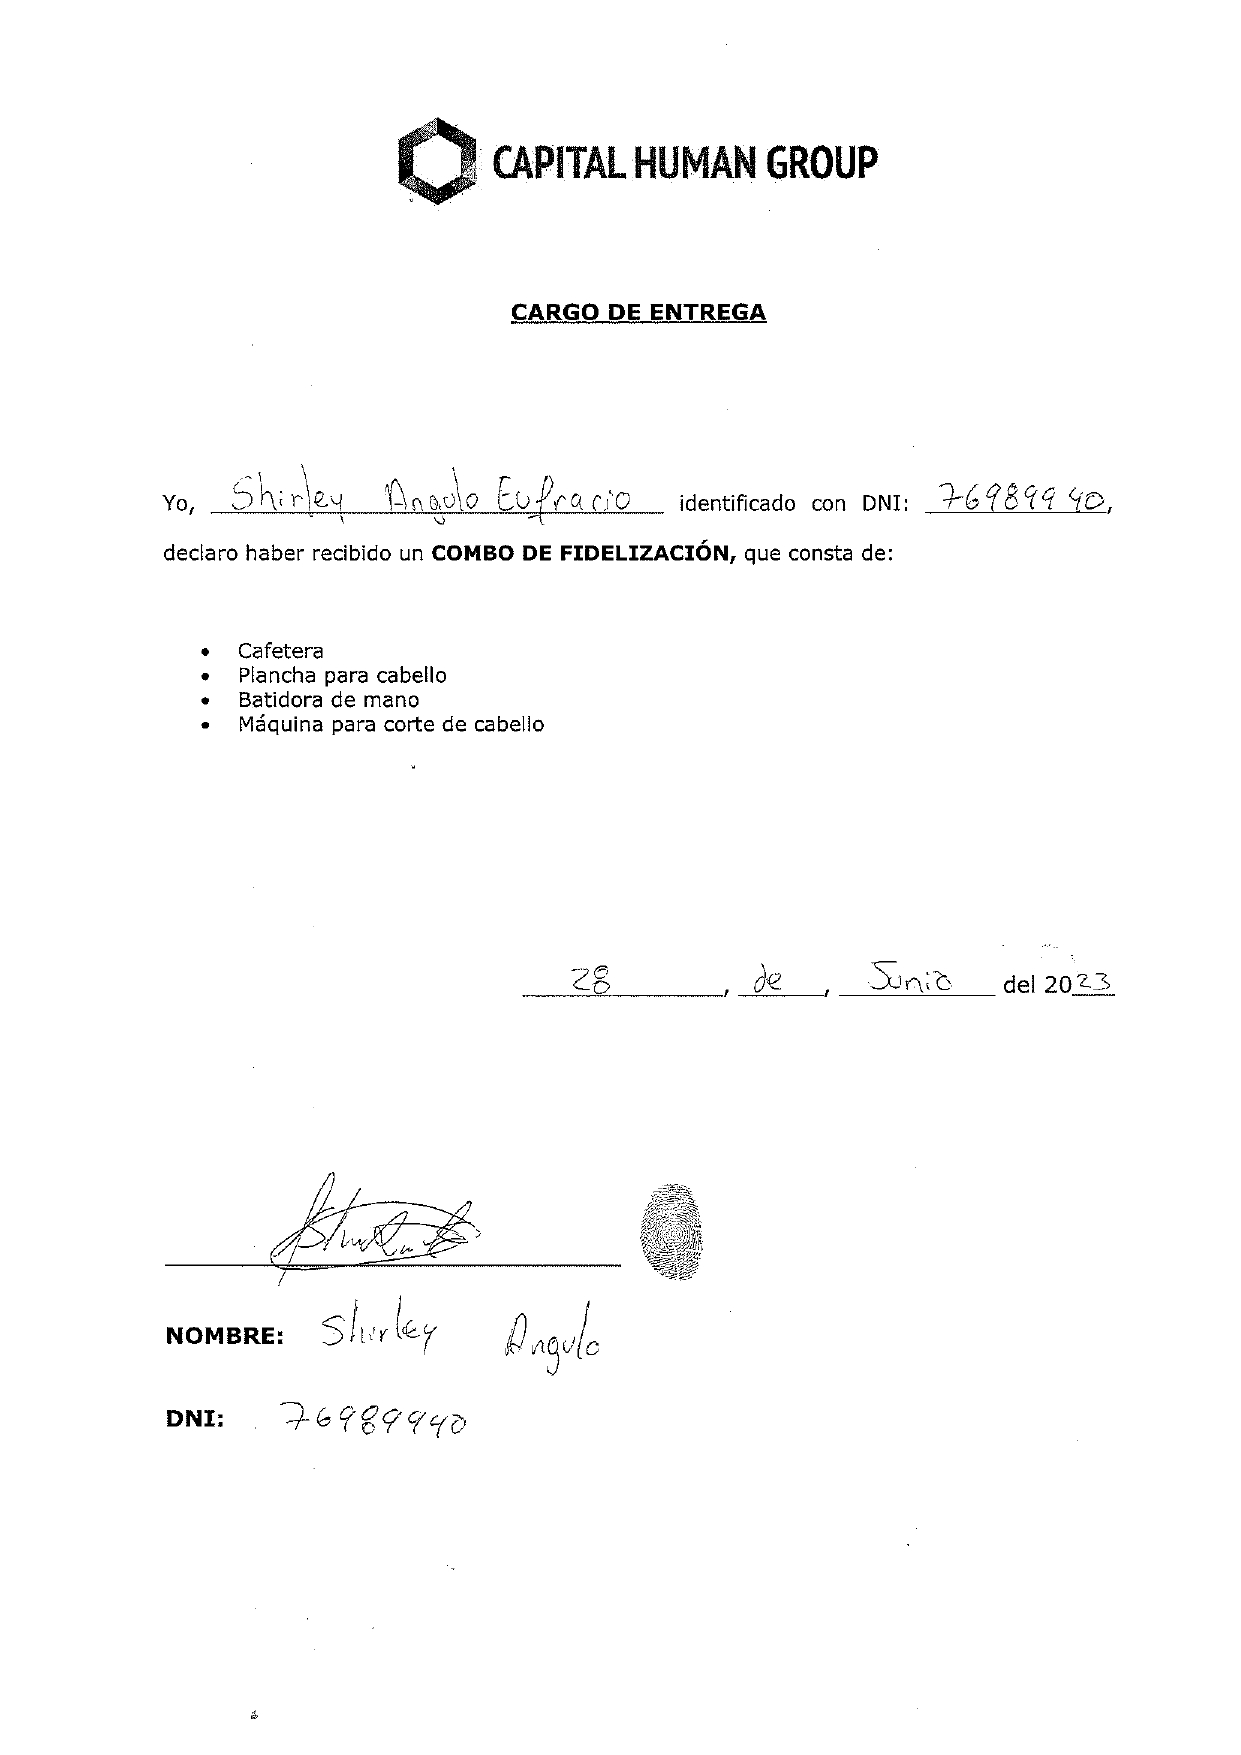 CAPITAL HUMAN GROUP
CARGO DE ENTREGA
Yo, Shirley Angulo Eufracio identificado con DNI: 76989940,
declaro haber recibido un COMBO DE FIDELIZACIÓN, que consta de:
• Cafetera
• Plancha para cabello
• Batidora de mano
• Máquina para corte de cabello
28, de, Junio del 2023
NOMBRE: Shirley Angulo
DNI: 76989940